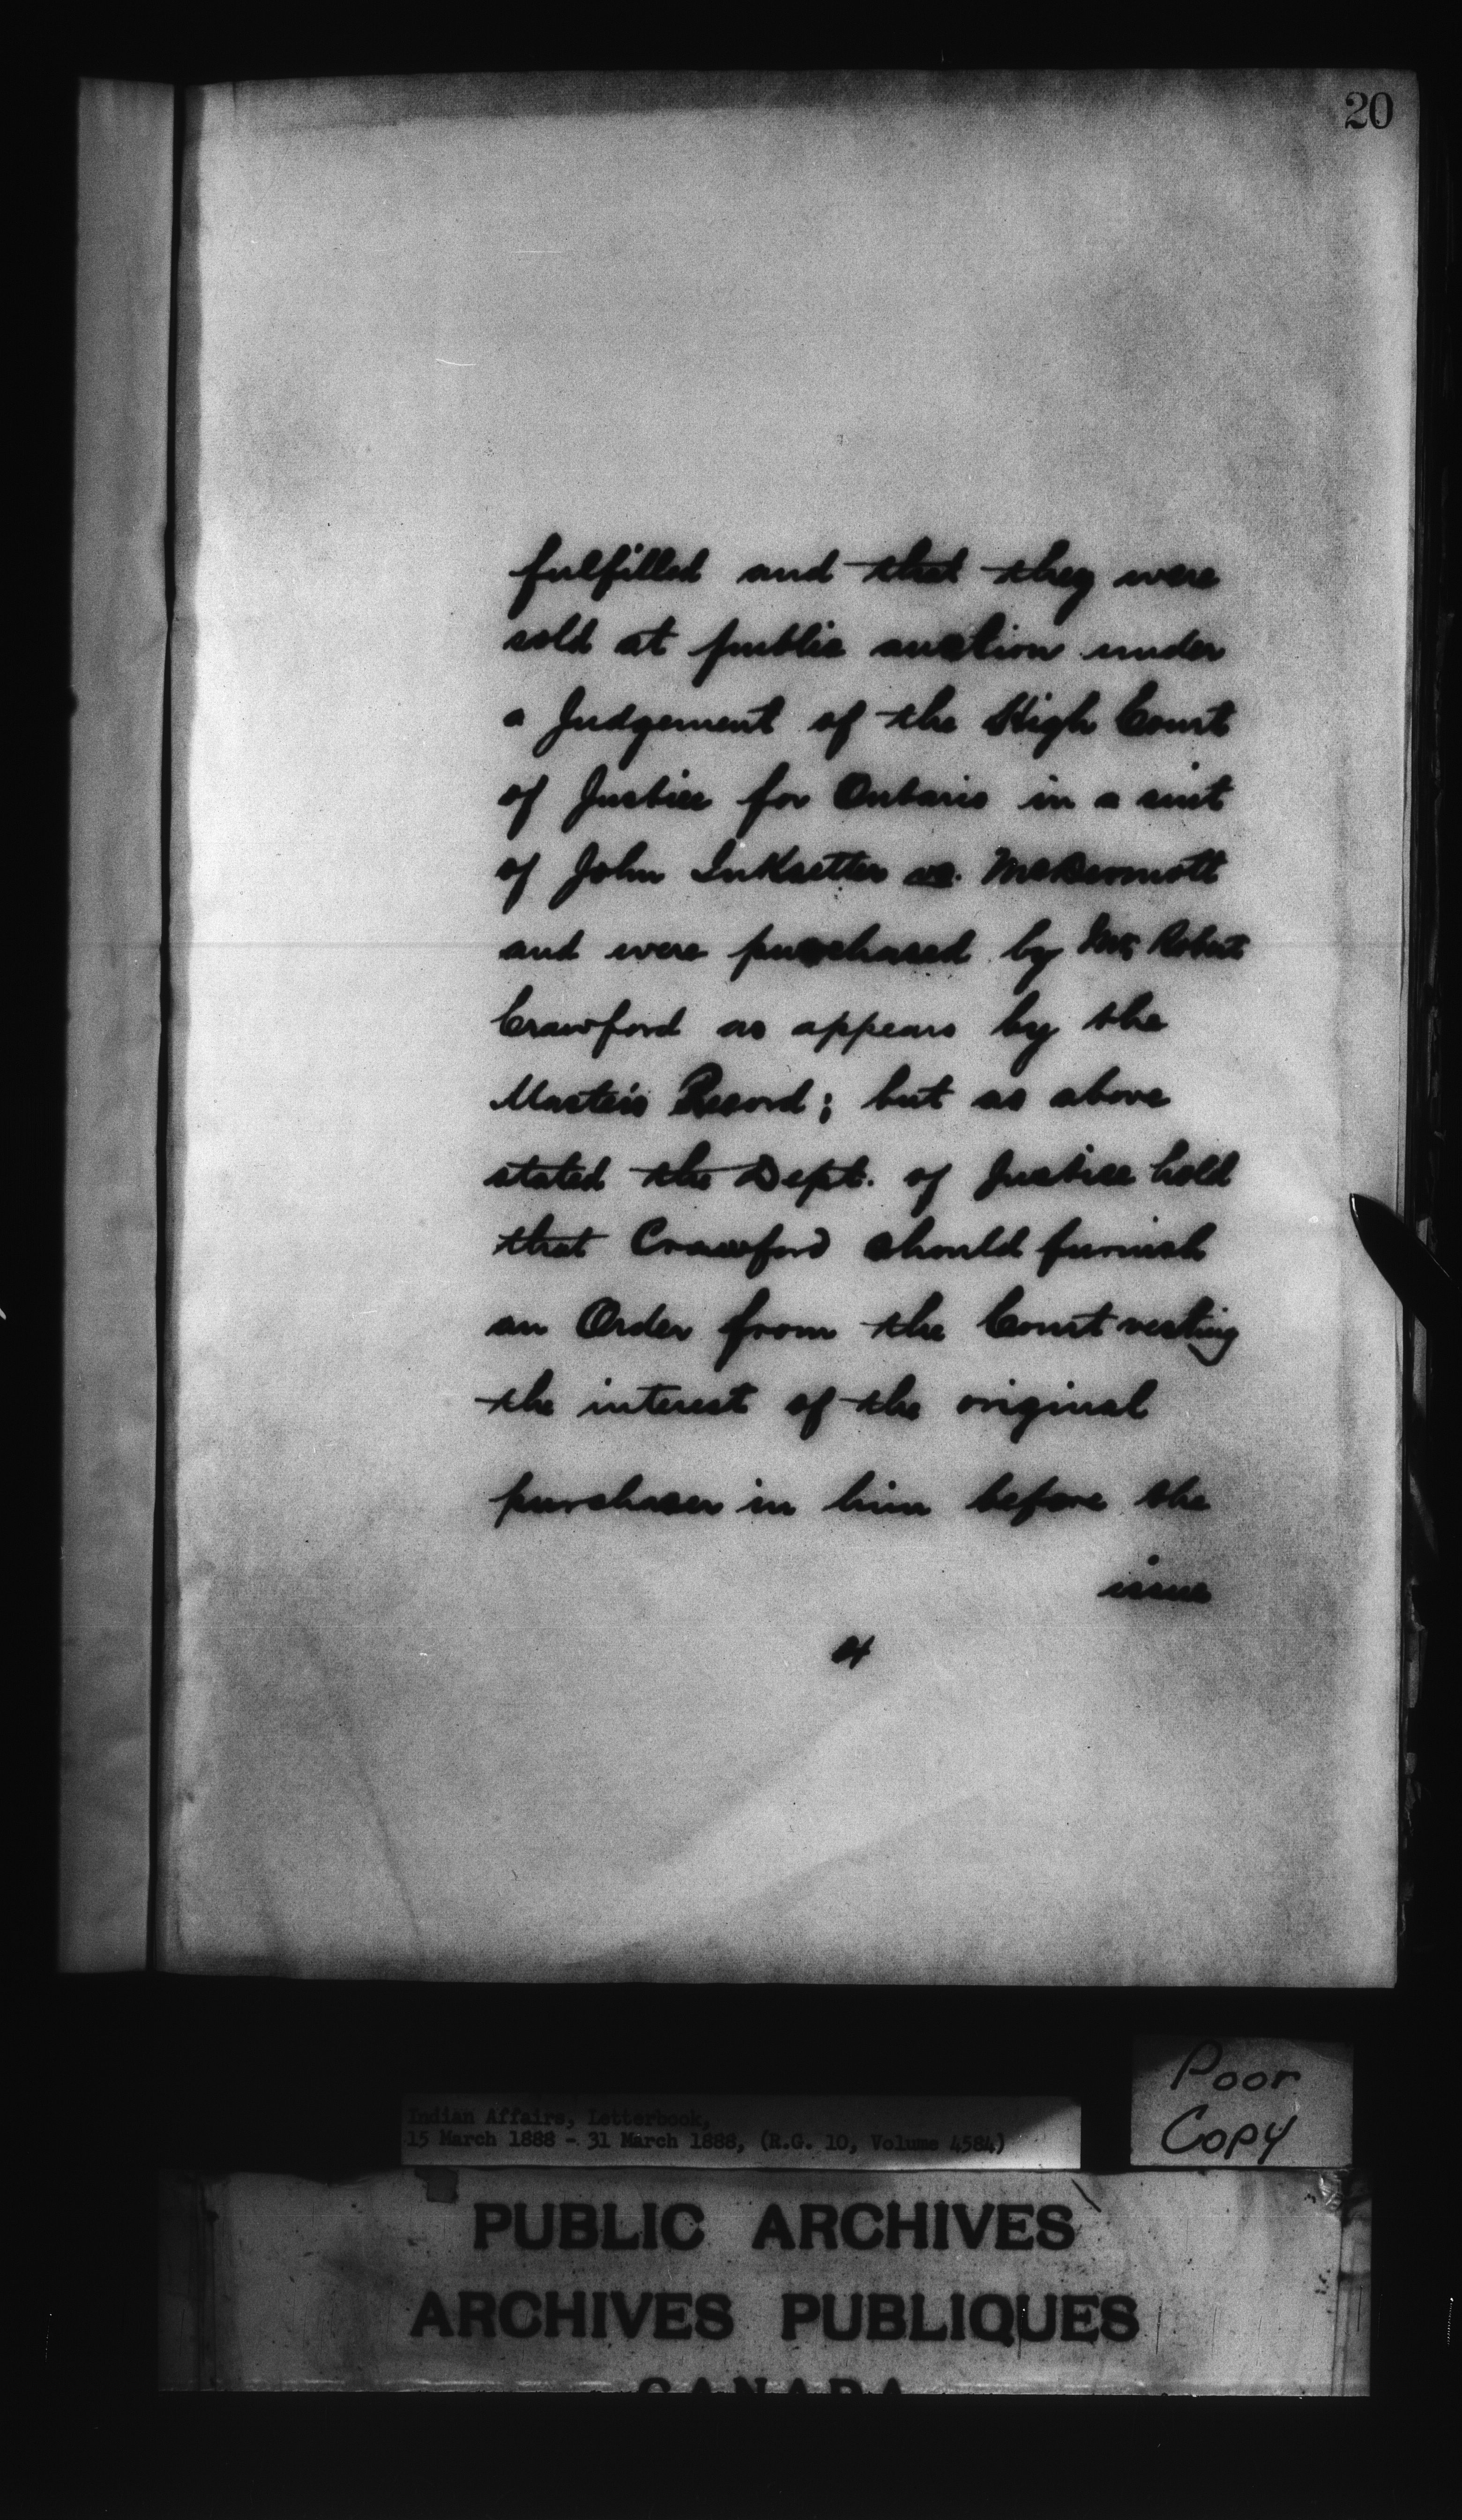 20
fulfilled and that they were
sold at public auction under
a Judgement of the High Court
of Justice for Ontario in a suit
of John Inksetter vs. McDermott
and were purchased by Mr. Robert
Crawford as appears by the
Master's Record; but as above
stated the Dept. of Justice hold
that Crawford should furnish
an Order from the Court vesting
the interest of the original
purchaser in him before the
issue
Poor
Copy
Indian Affairs, Letterbook,
15 March 1888 - 31 March 1888, (R.G. 10, Volume 4584)
PUBLIC ARCHIVES
ARCHIVES PUBLIQUES
CANADA